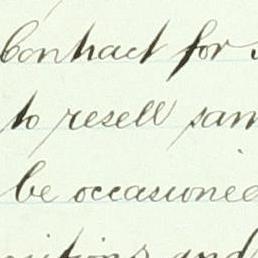 Contract for
to resell sam
be occasioned
and